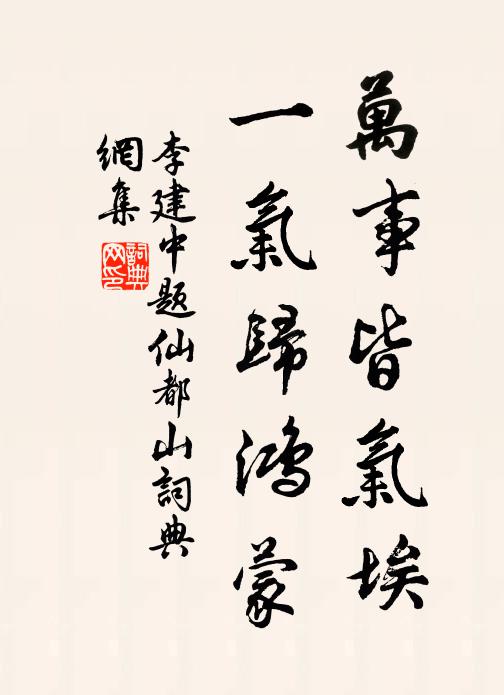 萬事皆氣埃
一氣歸鴻蒙
李建中題仙都山詞典
網集
詞典
网印